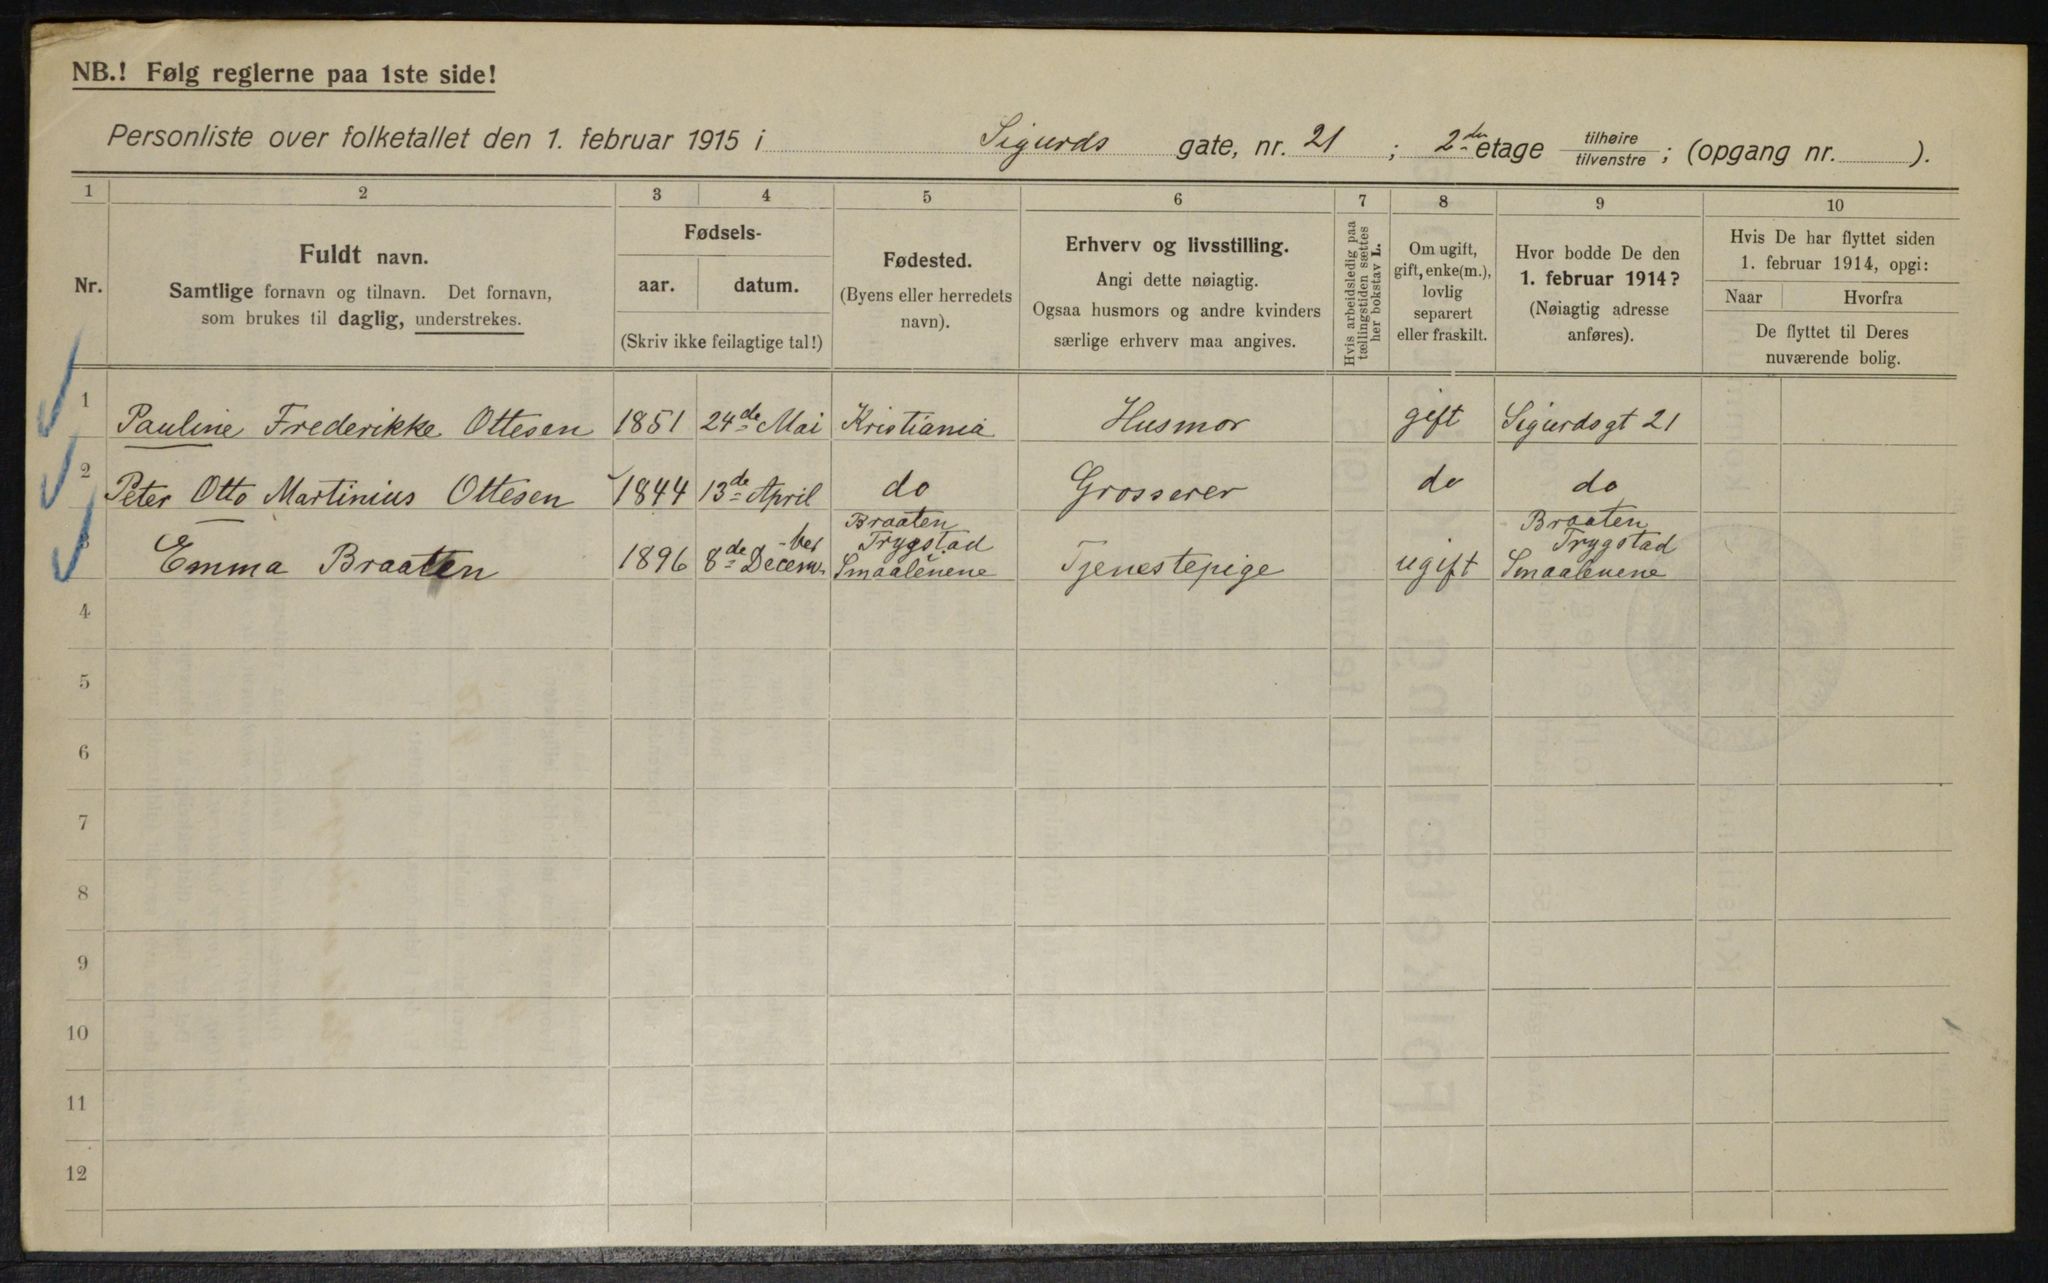 NB.! Følg reglerne paa 1ste side!
Personliste over folketallet den 1. februar 1915 i Sigurds gate, nr. 21 ; 2de etage tilhøire / tilvenstre ; (opgang nr. ).
1 2 3 4 5 6 7 8 9 10
Nr.
Fuldt navn.
Samtlige fornavn og tilnavn. Det fornavn,
som brukes til daglig, understrekes.
Fødsels-
aar. datum.
(Skriv ikke feilagtige tal!)
Fødested.
(Byens eller herredets
navn).
Erhverv og livsstilling.
Angi dette nøiagtig.
Ogsaa husmors og andre kvinders
særlige erhverv maa angives.
Hvis arbeidsledig paa
tællingstiden sættes
her bokstav L.
Om ugift,
gift, enke(m.),
lovlig
separert
eller fraskilt.
Hvor bodde De den
1. februar 1914?
(Nøiagtig adresse
anføres).
Hvis De har flyttet siden
1. februar 1914, opgi:
Naar Hvorfra
De flyttet til Deres
nuværende bolig.
1 Pauline Frederikke Ottesen 1851 24de Mai Kristiania Husmor gift Sigurdsgt 21
2 Peter Otto Martinius Ottesen 1844 13de April do Grosserer do do
3 Emma Braaten 1896 8de Decem-ber Braaten Trygstad Smaalenene Tjenestepige ugift Braaten Trygstad Smaalenene
4
5
6
7
8
9
10
11
12